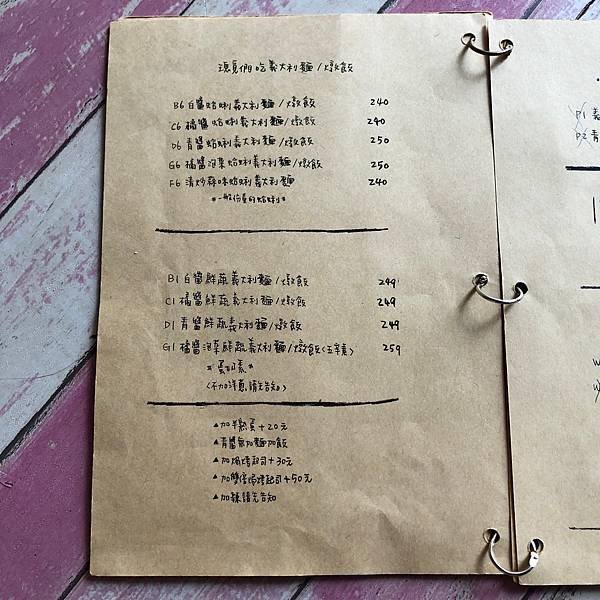 我們吃義大利麵/燉飯
B6 白醬蛤蜊義大利麵/燉飯 240
C6 橘醬蛤蜊義大利麵/燉飯 240
D6 青醬蛤蜊義大利麵/燉飯 250
G6 橘醬泡菜蛤蜊義大利麵/燉飯 250
F6 清炒蒜味蛤蜊義大利麵 240
*一般份量的蛤蜊*
B1 白醬鮮蔬義大利麵/燉飯 249
C1 橘醬鮮蔬義大利麵/燉飯 249
D1 青醬鮮蔬義大利麵/燉飯 249
G1 橘醬泡菜鮮蔬義大利麵/燉飯(五辛素) 259
*蛋奶素*
(不加洋蔥請先告知)
▲加半熟蛋+20元
▲青醬無加麵加飯
▲加焗烤起司+30元
▲加雙倍焗烤起司+50元
▲加辣請先告知
P1 義
P2 青